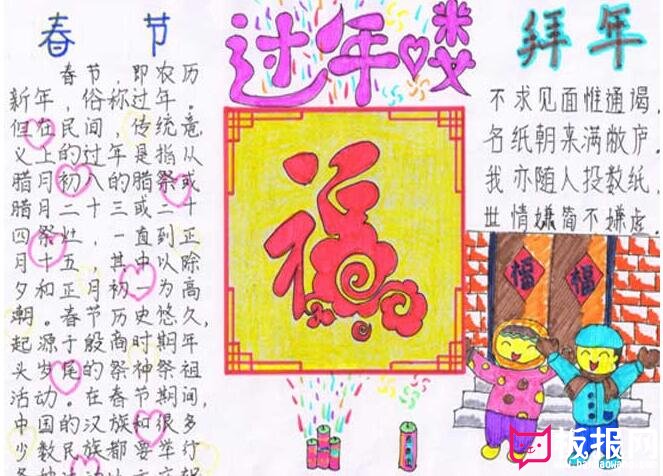 春节
春节，即农历
新年，俗称过年。
但在民间，传统意
义上的过年是指从
腊月初八的腊祭或
腊月二十三或二十
四祭灶，一直到正
月十五，其中以除
夕和正月初一为高
潮。春节历史悠久，
起源于殷商时期年
头岁尾的祭神祭祖
活动。在春节期间，
中国的汉族和很多
少数民族都要举行
过年喽
福
拜年
不求见面惟通谒，
名纸朝来满敝庐。
我亦随人投数纸，
世情嫌简不嫌虚。
福
福
板报网